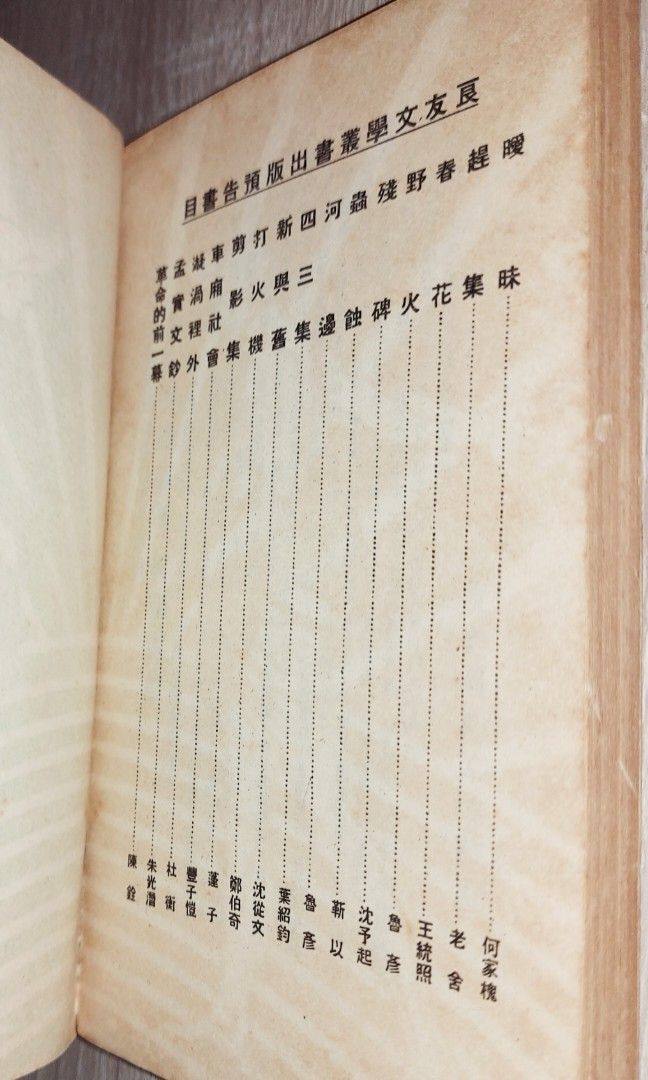 良友文學叢書出版預告書目
曖昧……何家槐
趕集……老舍
春花……王統照
野火……魯彥
殘碑……沈予起
蟲蝕……靳以
河邊……魯彥
四三集……葉紹鈞
新與舊……沈從文
打火機……鄭伯奇
剪影集……蓬子
車廂社會……豐子愷
漩渦裡外……杜衡
孟實文鈔……朱光潛
革命的前一幕……陳銓